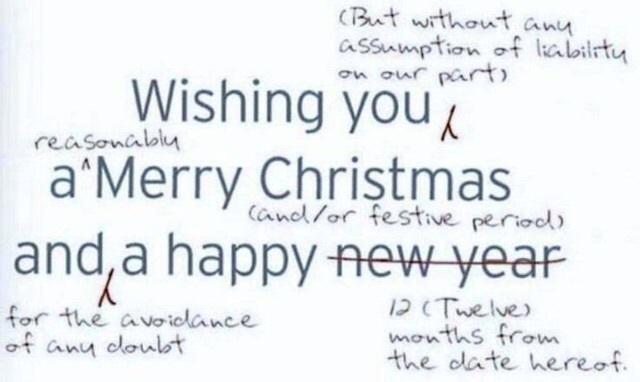 (But without any
assumption of liability
on our part)
Wishing you
reasonably
a Merry Christmas
(and/or festive period)
and, a happy new year
for the avoidance
of any doubt
12 (Twelve)
months from
the date hereof.